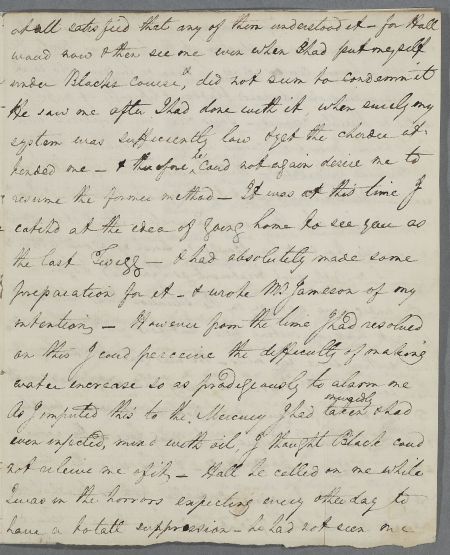 at all satisfied that any of them understood it – for Hall
woud now & then see me even when I had put myself
under Blacks course, & did not seem to condemn it
He saw me after I had done with it, when surely my
system was sufficiently low & yet the chordee at-
tended me – & therefore he coud not again desire me to
resume the former method – It was at this time I
catch'd at the idea of going home to see you as
the last – & had absolutely made some
preparation for it – & wrote Mr Jameson of my
intention – However from the time I had resolved
on this I coud perceive the difficulty of making
water increase so as prodigeously to alarm me
As I imputed this to the Mercury I had inwardly taken & had
even injected, mixd with oil, I thought Black coud
not relieve me of it – Hall he called on me while
I was in the horrors expecting every other day to
have a totall suppression – he had not seen me